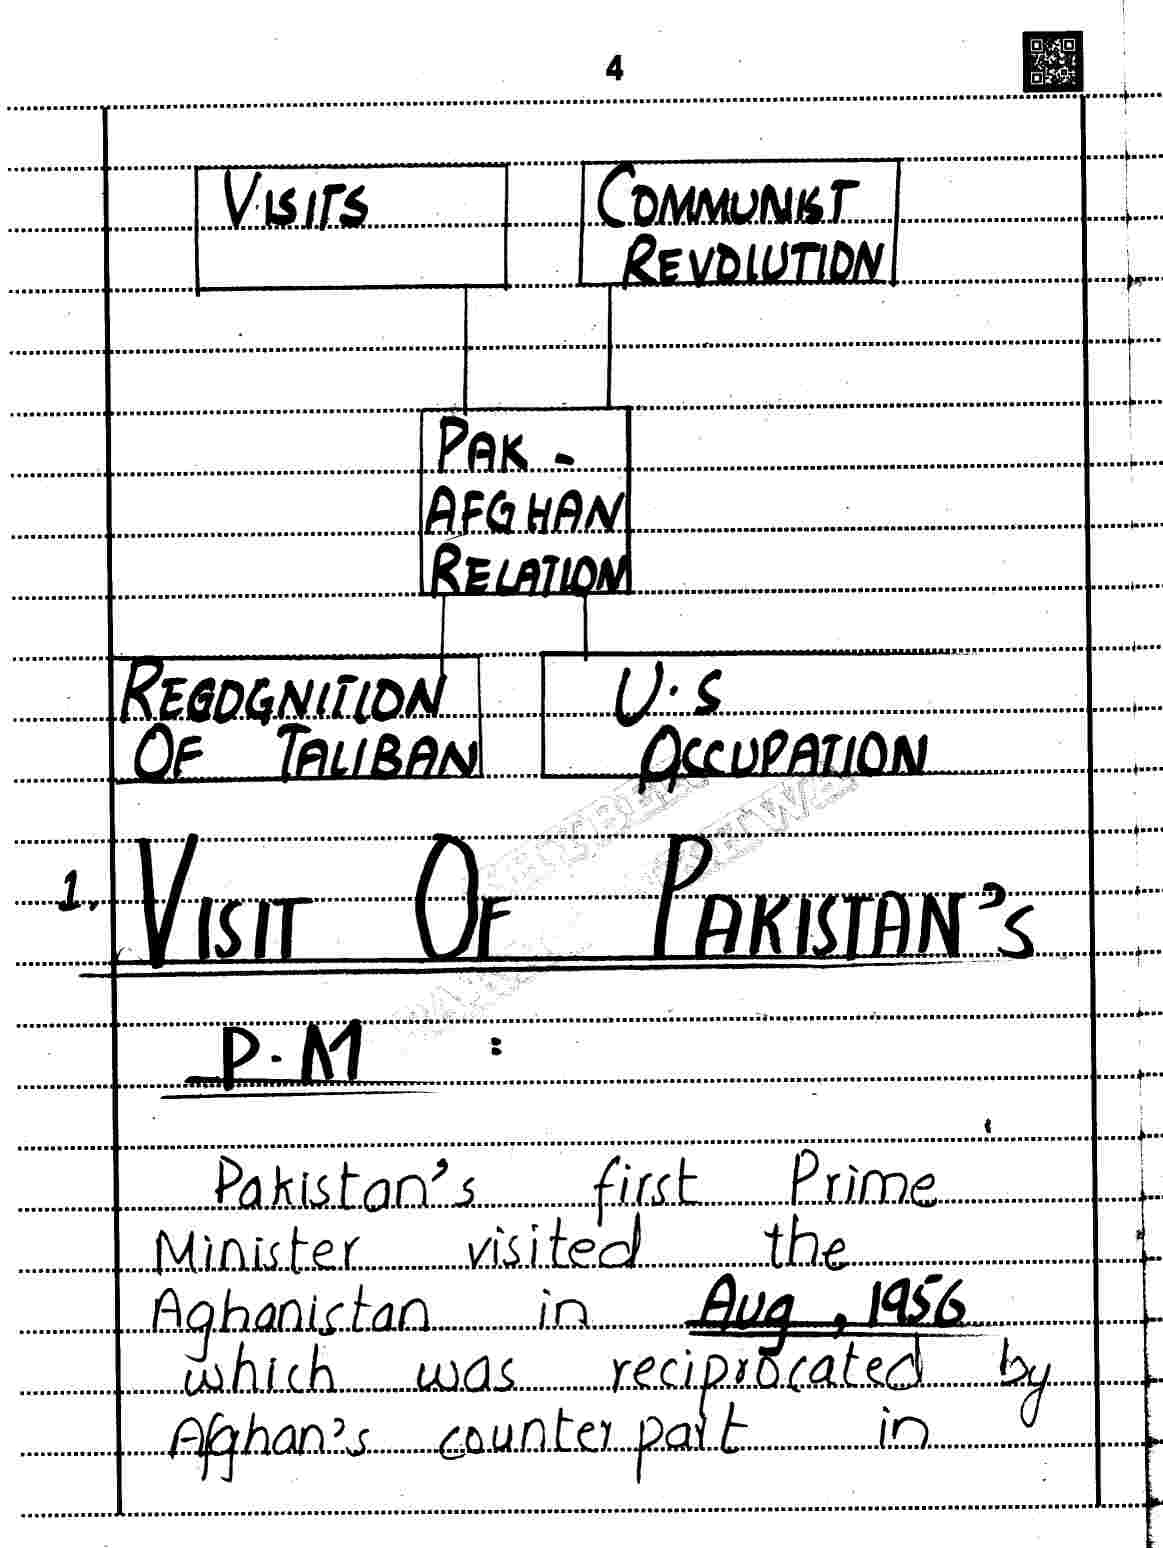 4
VISITS
COMMUNIST
REVOLUTION
PAK -
AFGHAN
RELATION
REGOGNITION
OF TALIBAN
U.S
OCCUPATION
1. VISIT OF PAKISTAN'S
P.M :
Pakistan's first Prime
Minister visited the
Aghanistan in Aug, 1956
which was reciprocated by
Afghan's counter part in